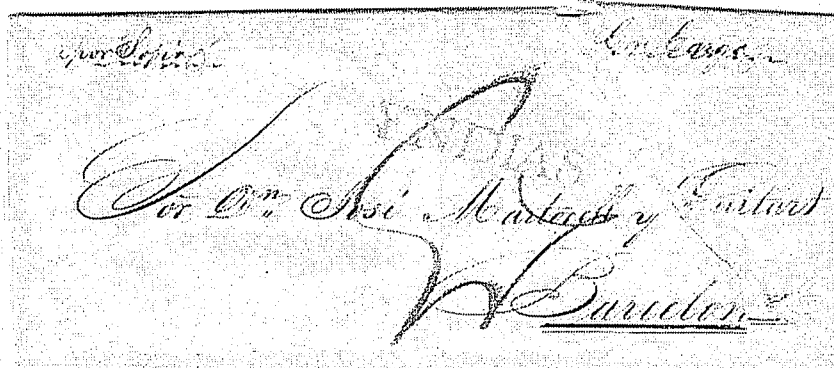 por Sofia
YNDIAS
Sor Dn. José Martorell y Guitart
Barcelona